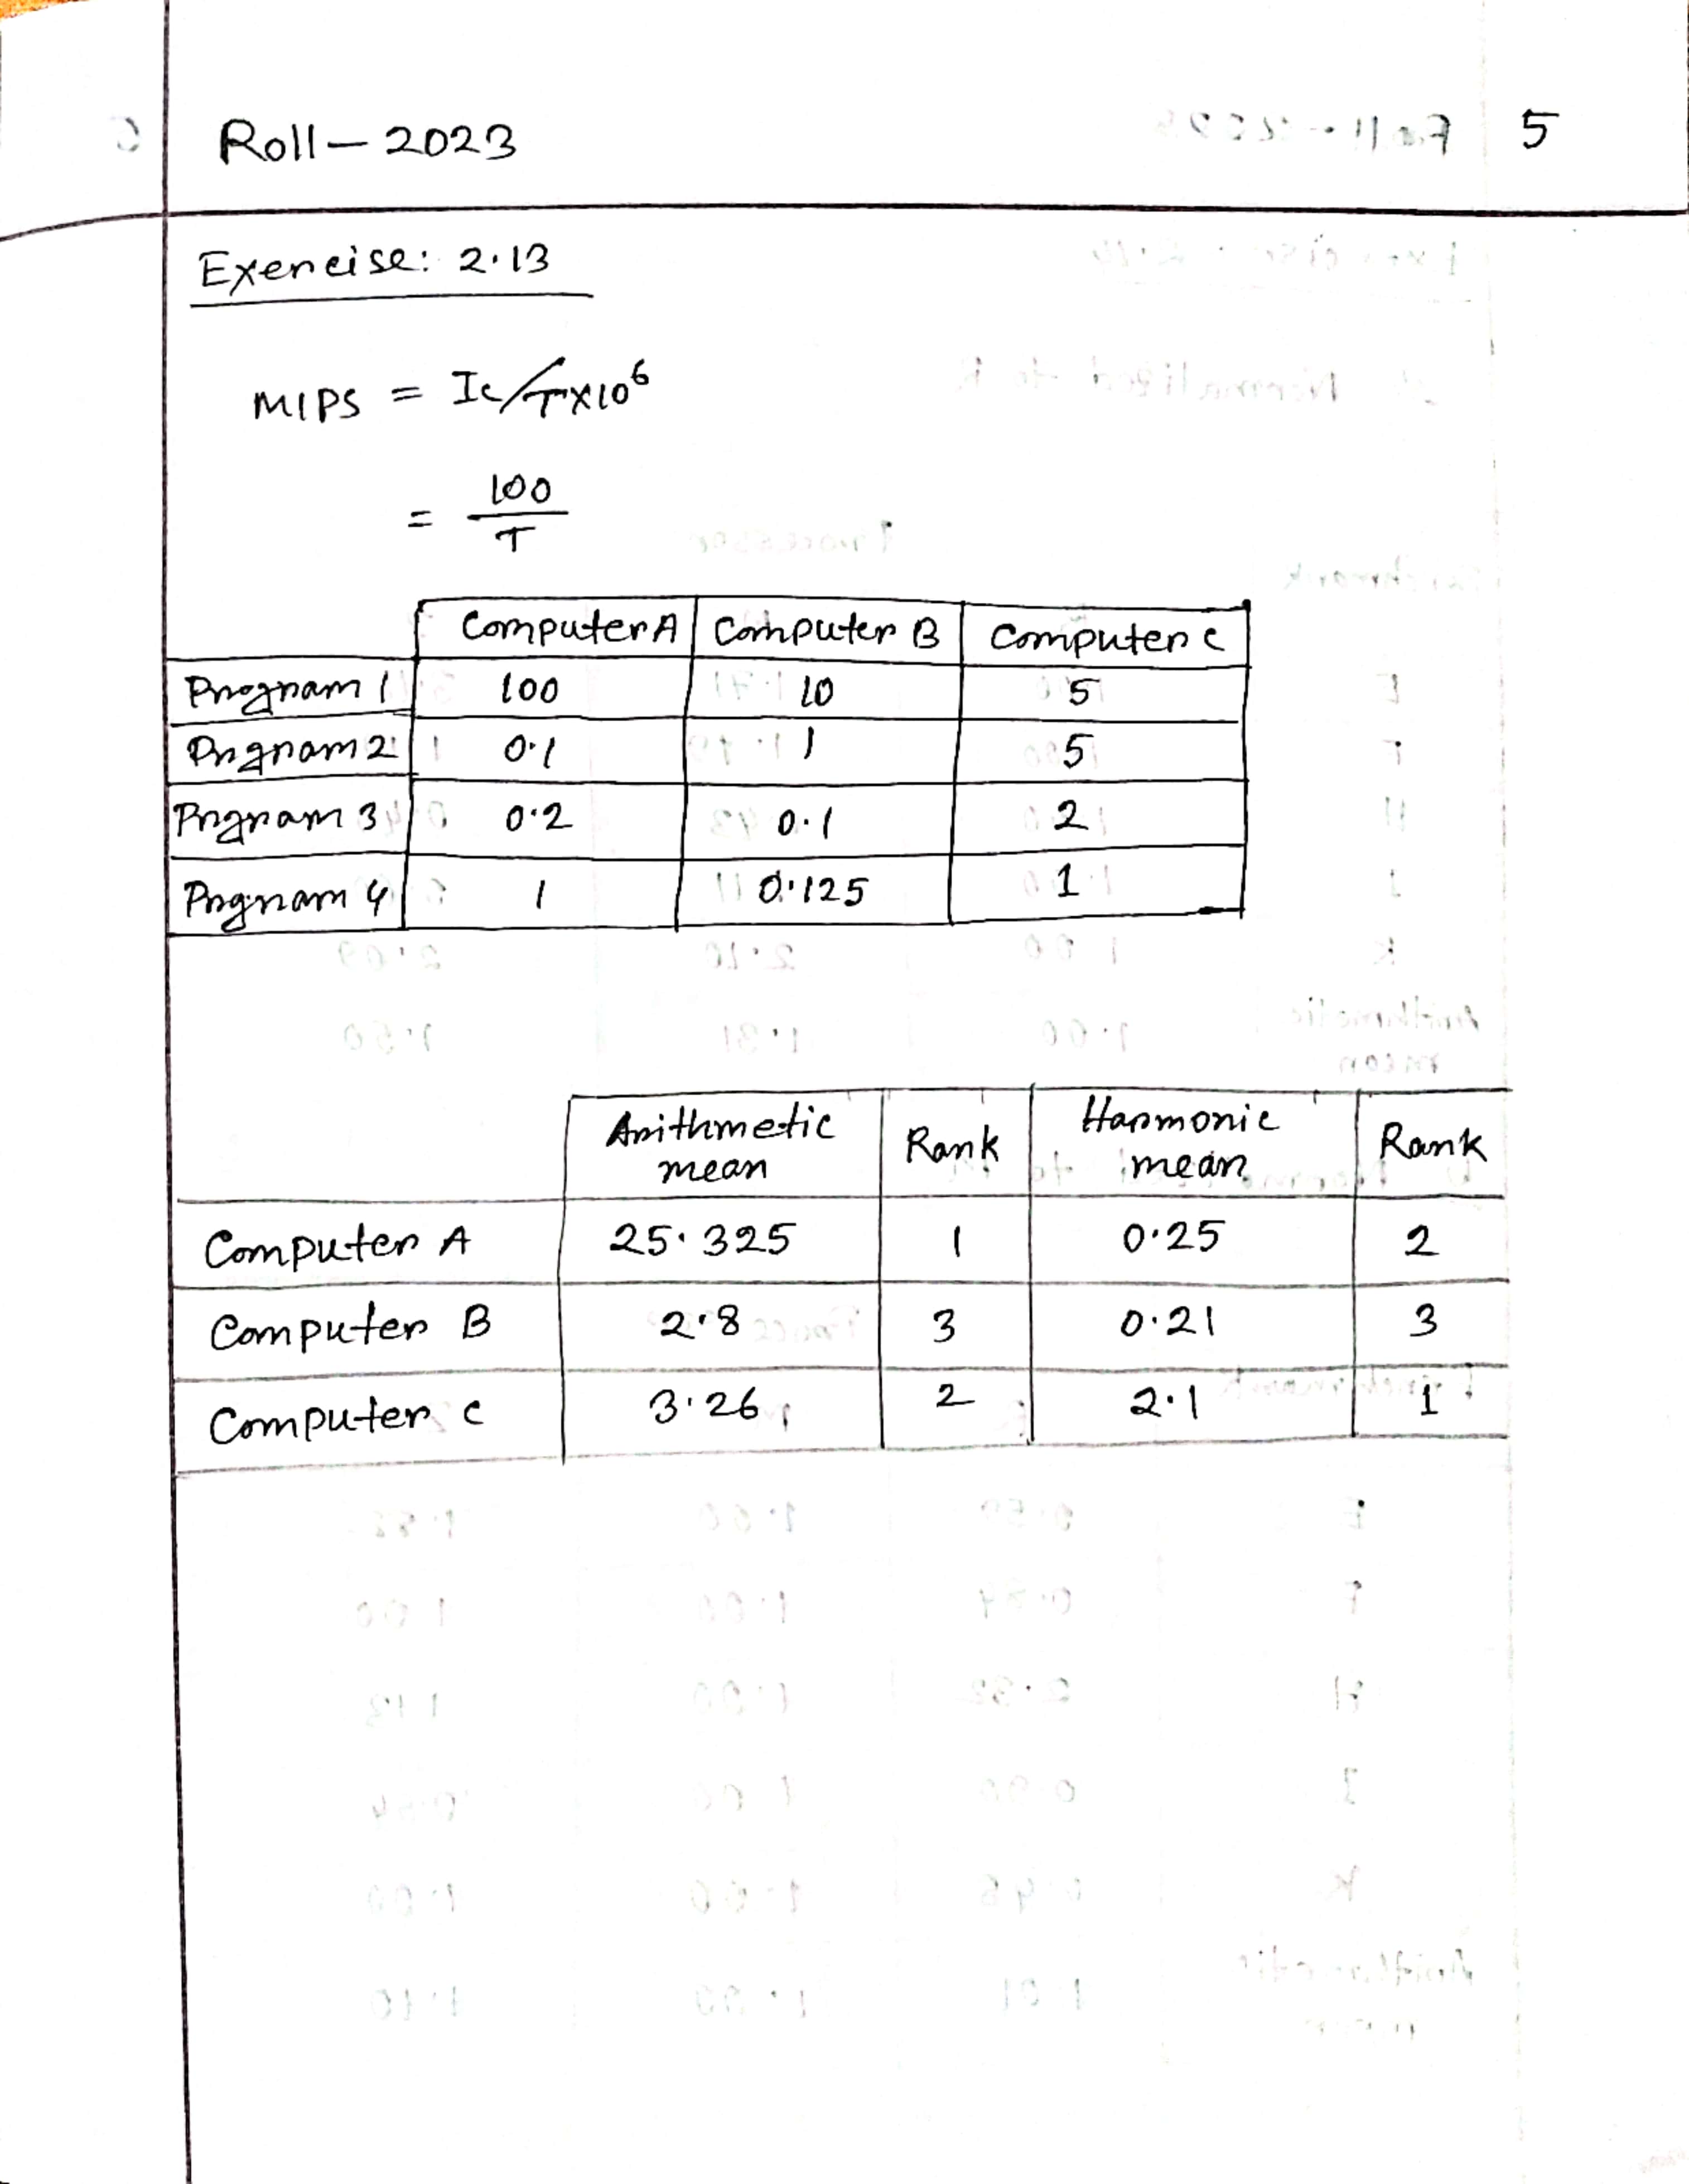 Roll - 2023 5
Exercise: 2.13
MIPS = Ic/T×10⁶
= 100/T
Computer A Computer B Computer C
Program 1 100 10 5
Prgram 2 0.1 1 5
Prgram 3 0.2 0.1 2
Prgram 4 1 0.125 1
Arithmetic mean Rank Harmonic mean Rank
Computer A 25.325 1 0.25 2
Computer B 2.8 3 0.21 3
Computer C 3.26 2 2.1 1